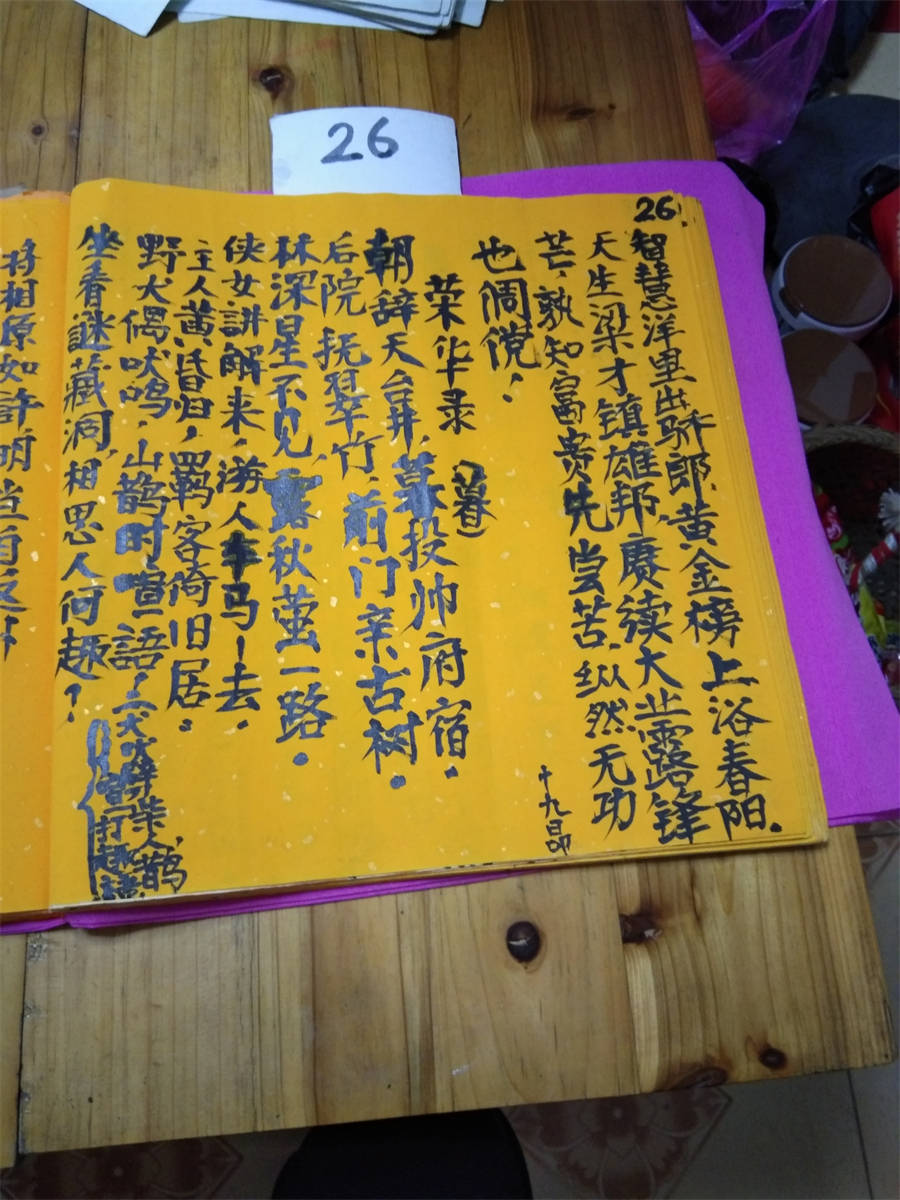 26
26
智慧洋里出骄郎,黄金榜上浴春阳.
天生梁才镇雄邦,赓续大业露锋
芒,孰知富贵先尝苦,纵然无功
也倜傥!
十九
荣华录
(暮)
朝辞天台井,暮投帅府宿.
后院抚翠竹,前门亲古树.
林深星不见,露秋萤一路.
侠女讲解来,涝人车马去.
主人黄昏归,羁客倚旧居.
野犬偶吠鸣,山鹊时喧語!
坐看謎藏洞,相思人何趣?
将相原如許明当自